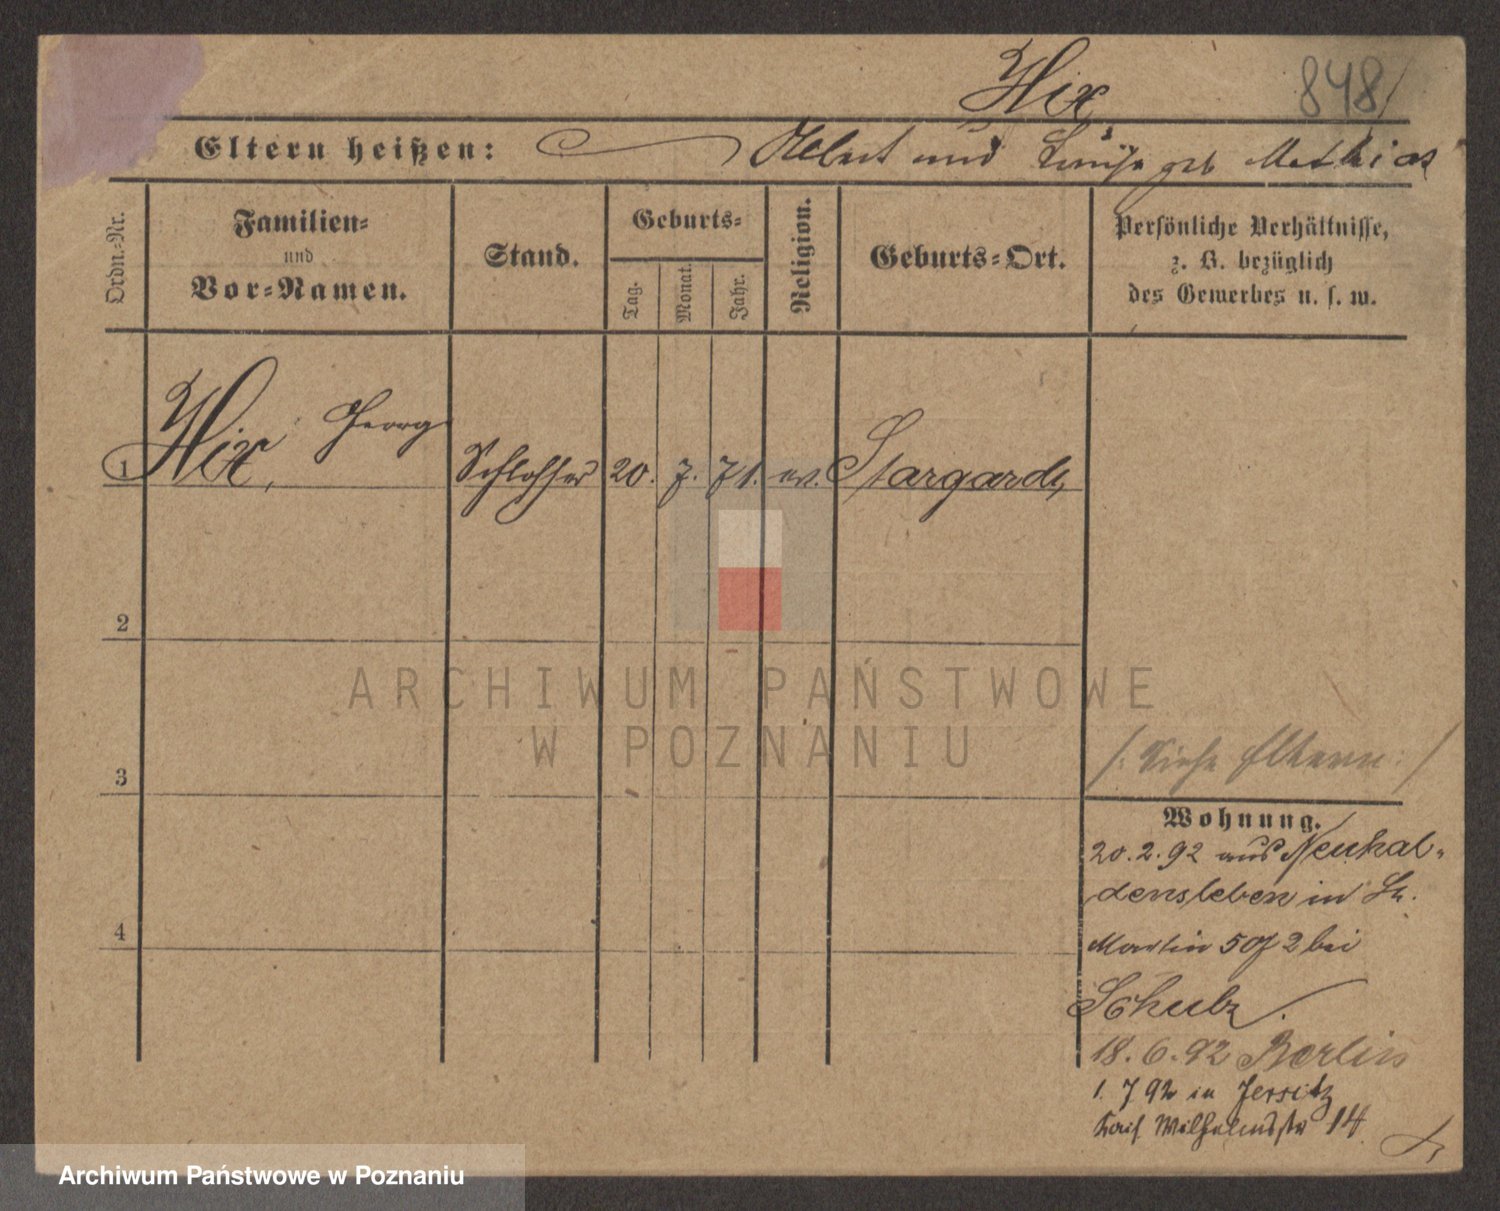 Hix
848
Eltern heißen: Albert und Luise geb Mathias
Ordn.-Nr.
Familien-
und
Vor-Namen.
Stand.
Geburts-
Tag.
Monat.
Jahr.
Religion.
Geburts-Ort.
Persönliche Verhältnisse,
z. B. bezüglich
des Gewerbes u. s. w.
1 Hix, Georg Schlosser 20. 7. 71. ev. Stargard
2
3
4
/: Siehe Eltern :/
Wohnung.
20.2.92 aus Neuhal-
densleben in St.
Martin 50/2 bei
Schulz.
18.6.92 Berlin
1. 7 92 in Jersitz
Kais Wilhelmstr 14
ARCHIWUM PAŃSTWOWE
W POZNANIU
Archiwum Państwowe w Poznaniu